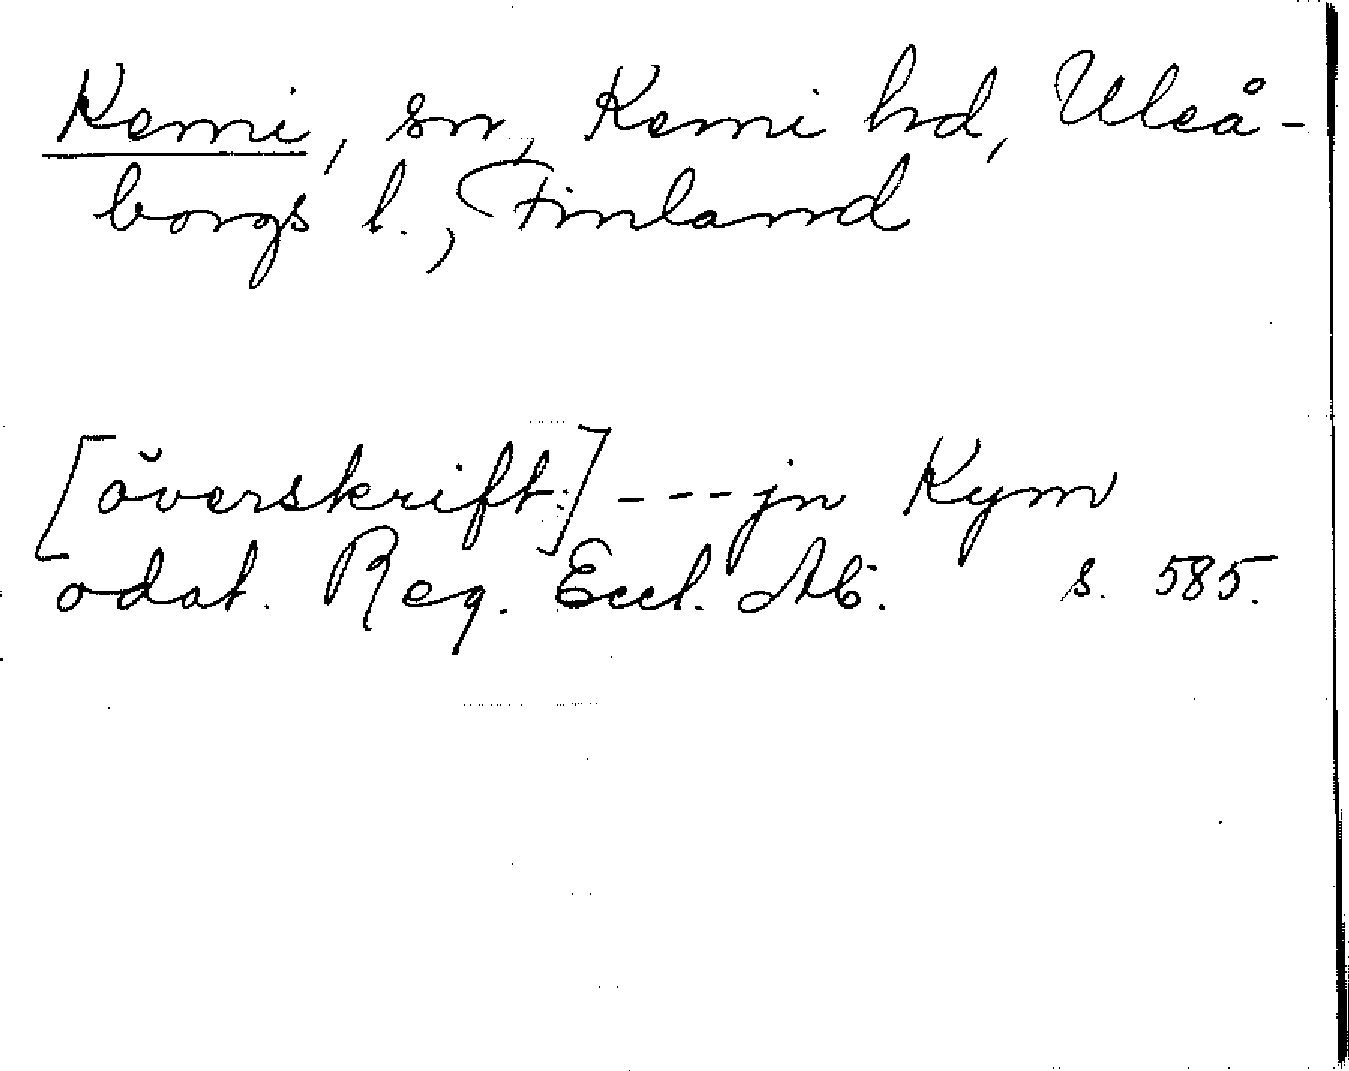 Kemi, sn, Kemi hd, Uleå-
borgs l., Finland
[överskrift] - - - jn Kym
odat. Reg. Eccl. Ab. s. 585.